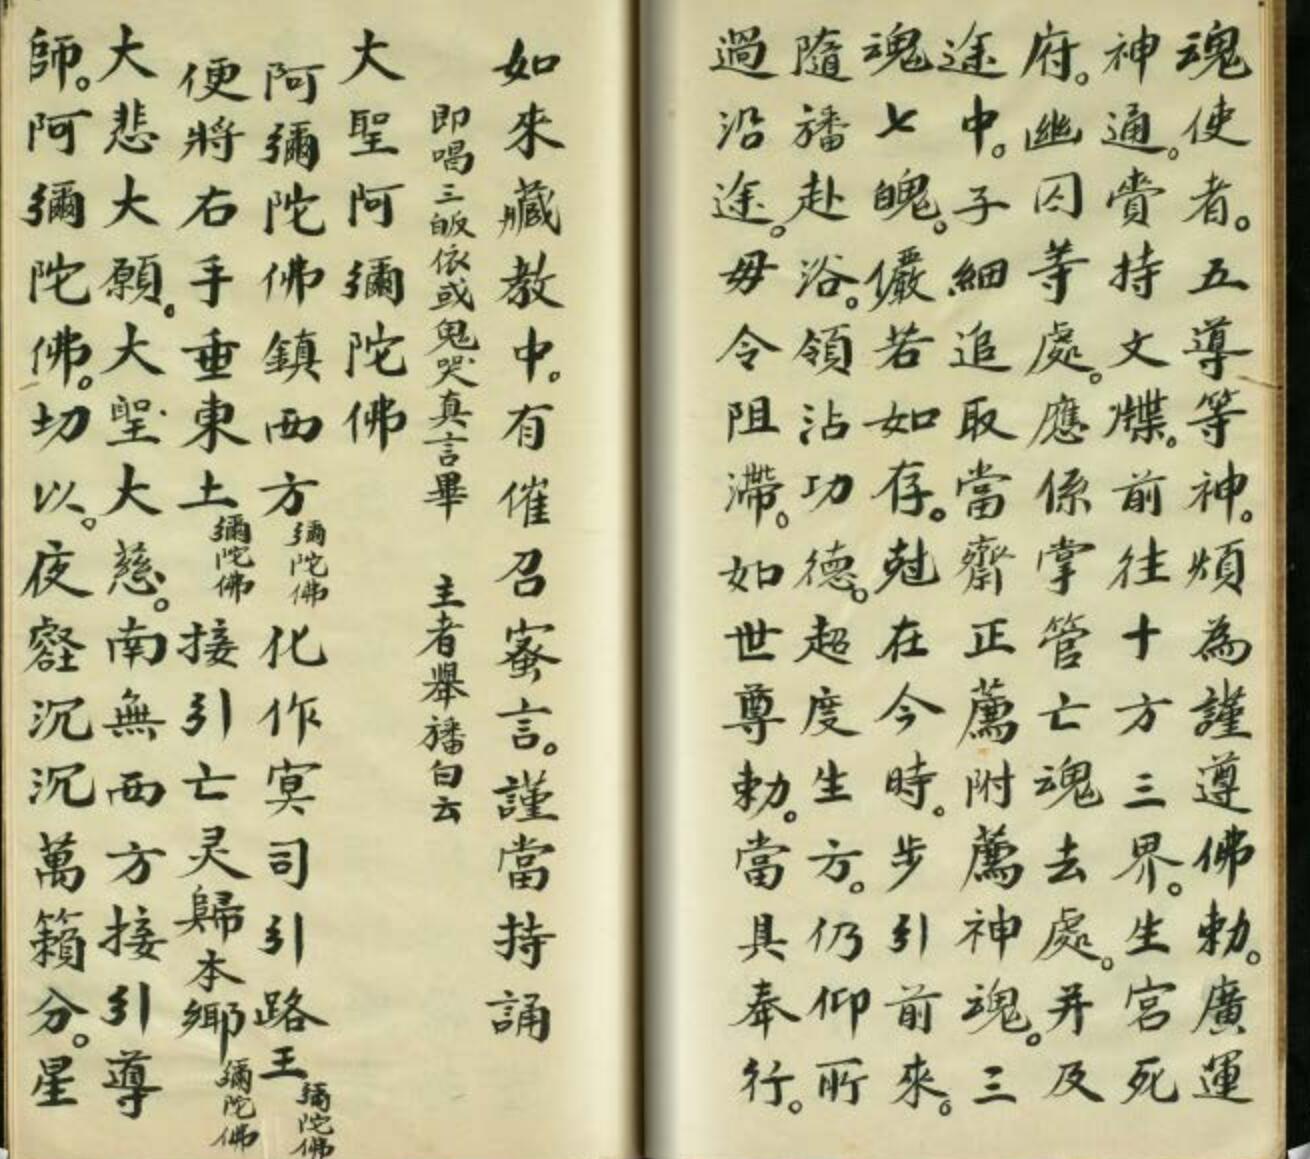 魂使者。五導等神。煩為謹遵佛勅。廣運
神通。賫持文牒。前往十方三界。生宮死
府。幽囚等處。應係掌管亡魂去處。并及
途中。子細追取當齋正薦附薦神魂。三
魂七魄。儼若如存。尅在今時。步引前來。
隨旙赴浴。領沾功德。超度生方。仍仰所
過沿途。毋令阻滯。如世尊勅。當具奉行。
如來藏教中。有催召蜜言。謹當持誦
即唱三皈依或鬼哭真言畢 主者舉旙白云
大聖阿彌陀佛
阿彌陀佛鎮西方彌陀佛化作冥司引路王彌陀佛
便將右手垂東土彌陀佛接引亡灵歸本鄉彌陀佛
大悲大願。大聖大慈。南無西方接引導
師。阿彌陀佛。切以。夜壑沉沉萬籟分。星